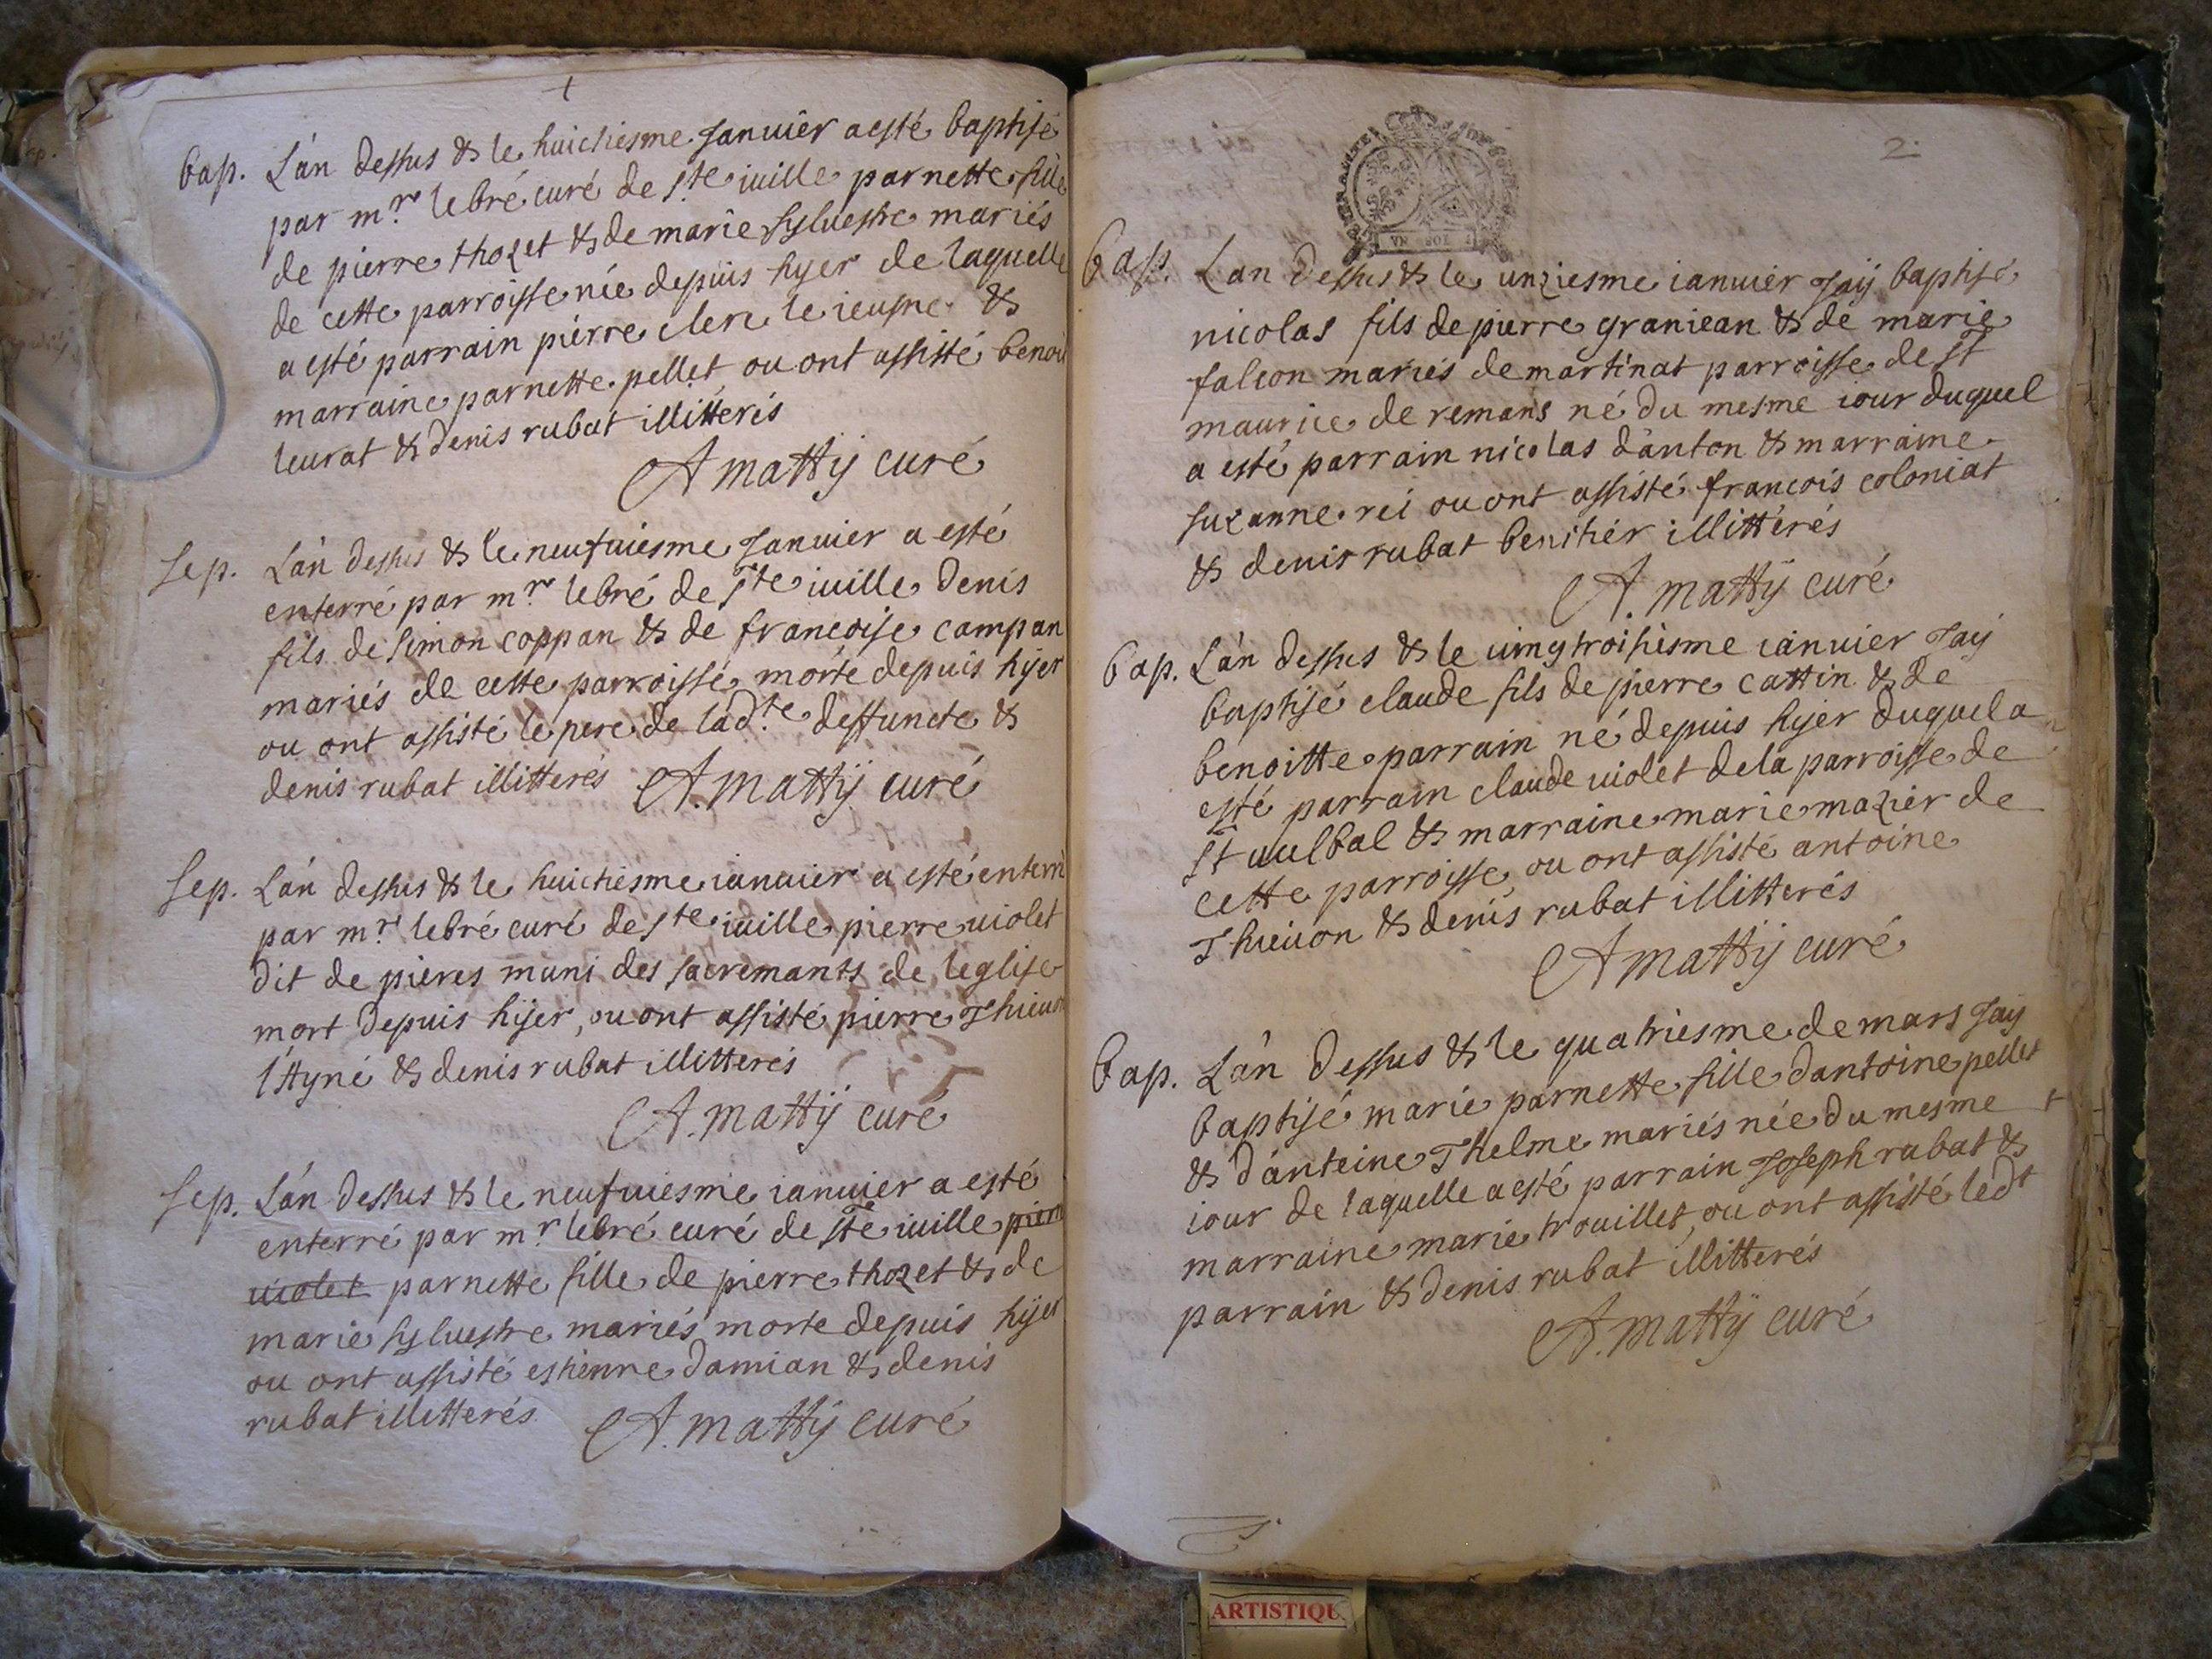 bap. L'an dessus & le huictiesme Januier a esté baptisé
par m.r lebré curé de s.te iuille parnette fille
de pierre thozet & de marie syluestre mariés
de cette parroisse née depuis hyer de laquelle
a esté parrain pierre clerc le ieusne &
marraine parnette pellet ou ont assisté benoit
leurat & denis rubat illitterés
A mattij curé
sep. L'an dessus & le neufuiesme Januier a esté
enterré par m.r lebré de s.te iuille denis
fils de simon coppan & de francoise campan
mariés de cette parroisse morte depuis hijer
ou ont assisté le pere de lad.te deffuncte &
denis rubat illitterés A. mattij curé
sep. L'an dessus & le huictiesme ianuier a esté enterré
par m.r lebré curé de s.te iuille pierre uiolet
dit de pieres muni des sacremants de leglise
mort depuis hijer, ou ont assisté pierre Thieuon
l'ttyné & denis rubat illitterés
A. mattij curé
sep. L'an dessus & le neufuiesme ianuier a esté
enterré par m.r lebré curé de s.te iuille pierre
uiolet parnette fille de pierre thozet & de
marie syluestre mariés morte depuis hijer
ou ont assisté estienne damian & denis
rubat illitterés A. mattij curé
2.
VN SOL
bap. Lan dessus & le unziesme ianuier Jaij baptisé
nicolas fils de pierre graniean & de marie
falcon mariés de martinat parroisse de st
maurice de remans né du mesme iour duquel
a esté parrain nicolas d'anton & marraine
suzanne rei ou ont assisté francois coloniat
& denis rubat benitier illittérés
A. mattij curé
bap. L'an dessus & le uingtroisiesme ianuier Jaij
baptisé claude fils de pierre cattin & de
benoitte parrain né depuis hyer duquel a
esté parrain claude uiolet de la parroisse de
st uulbal & marraine marie mazier de
cette parroisse, ou ont assisté antoine
Thieuon & denis rubat illitterés
A mattij curé
bap. L'an dessus & le quatriesme de mars Jaij
baptisé marie parnette fille dantoine pellet
& d'anteine Thelme mariés née du mesme
iour de laquelle a esté parrain Joseph rubat &
marraine marie trouillet, ou ont assisté led.t
parrain & denis rubat illitterés
A. mattij curé
ARTISTIQU